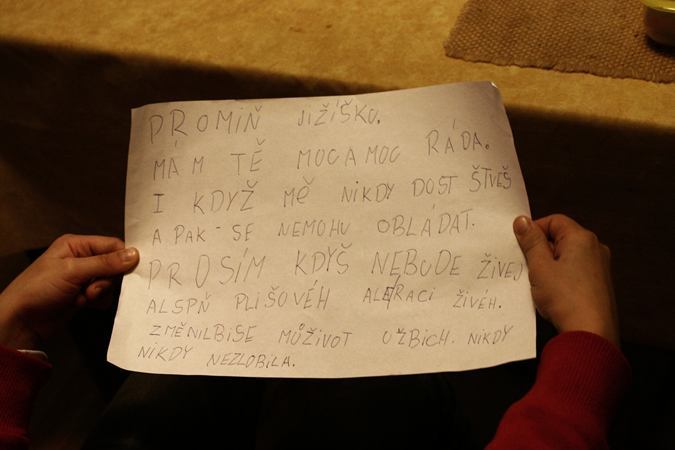 PROMIŇ JIŽÍŠKU.
MÁM TĚ MOCAMOC RÁDA.
I KDYŽ MĚ NIKDY DOST ŠTVEŠ
A PAK SE NEMOHU OBLÁDAT.
PROSÍM KDYŠ NEBUDE ŽIVEJ
ALSPŇ PLIŠOVÉH ALE RACI ŽIVÉH.
ZMĚNILBISE MŮŽIVOT UŽBICH. NIKDY
NIKDY NEZLOBILA.